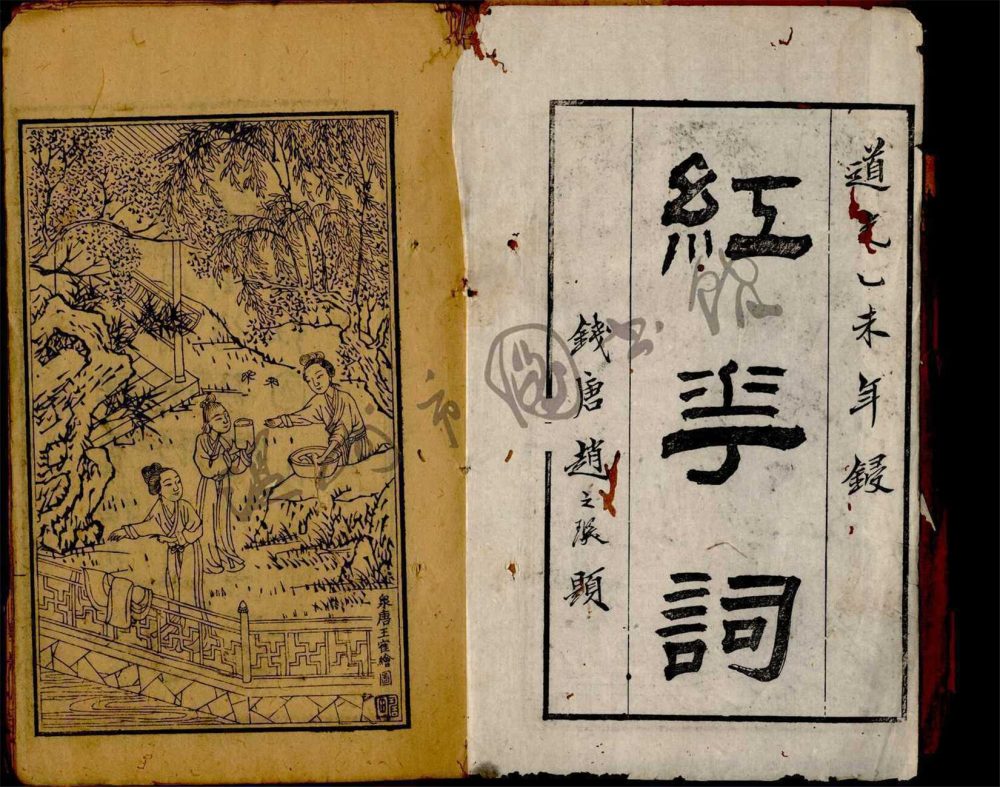 道光乙未年鋟
紅芋詞
錢唐趙之琛題
泉唐王崔繪圖